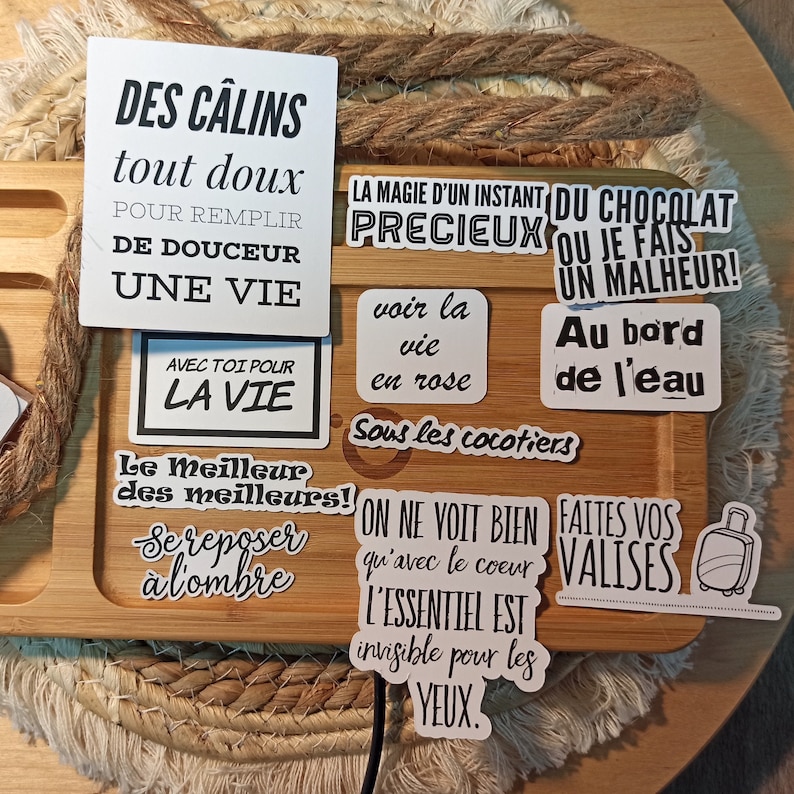 DES CÂLINS
tout doux
POUR REMPLIR
DE DOUCEUR
UNE VIE
LA MAGIE D'UN INSTANT
PRECIEUX
DU CHOCOLAT
OU JE FAIS
UN MALHEUR!
AVEC TOI POUR
LA VIE
voir la
vie
en rose
Au bord
de l'eau
Sous les cocotiers
Le Meilleur
des meilleurs!
Se reposer
à l'ombre
ON NE VOIT BIEN
qu'avec le coeur
L'ESSENTIEL EST
invisible pour les
YEUX.
FAITES VOS
VALISES